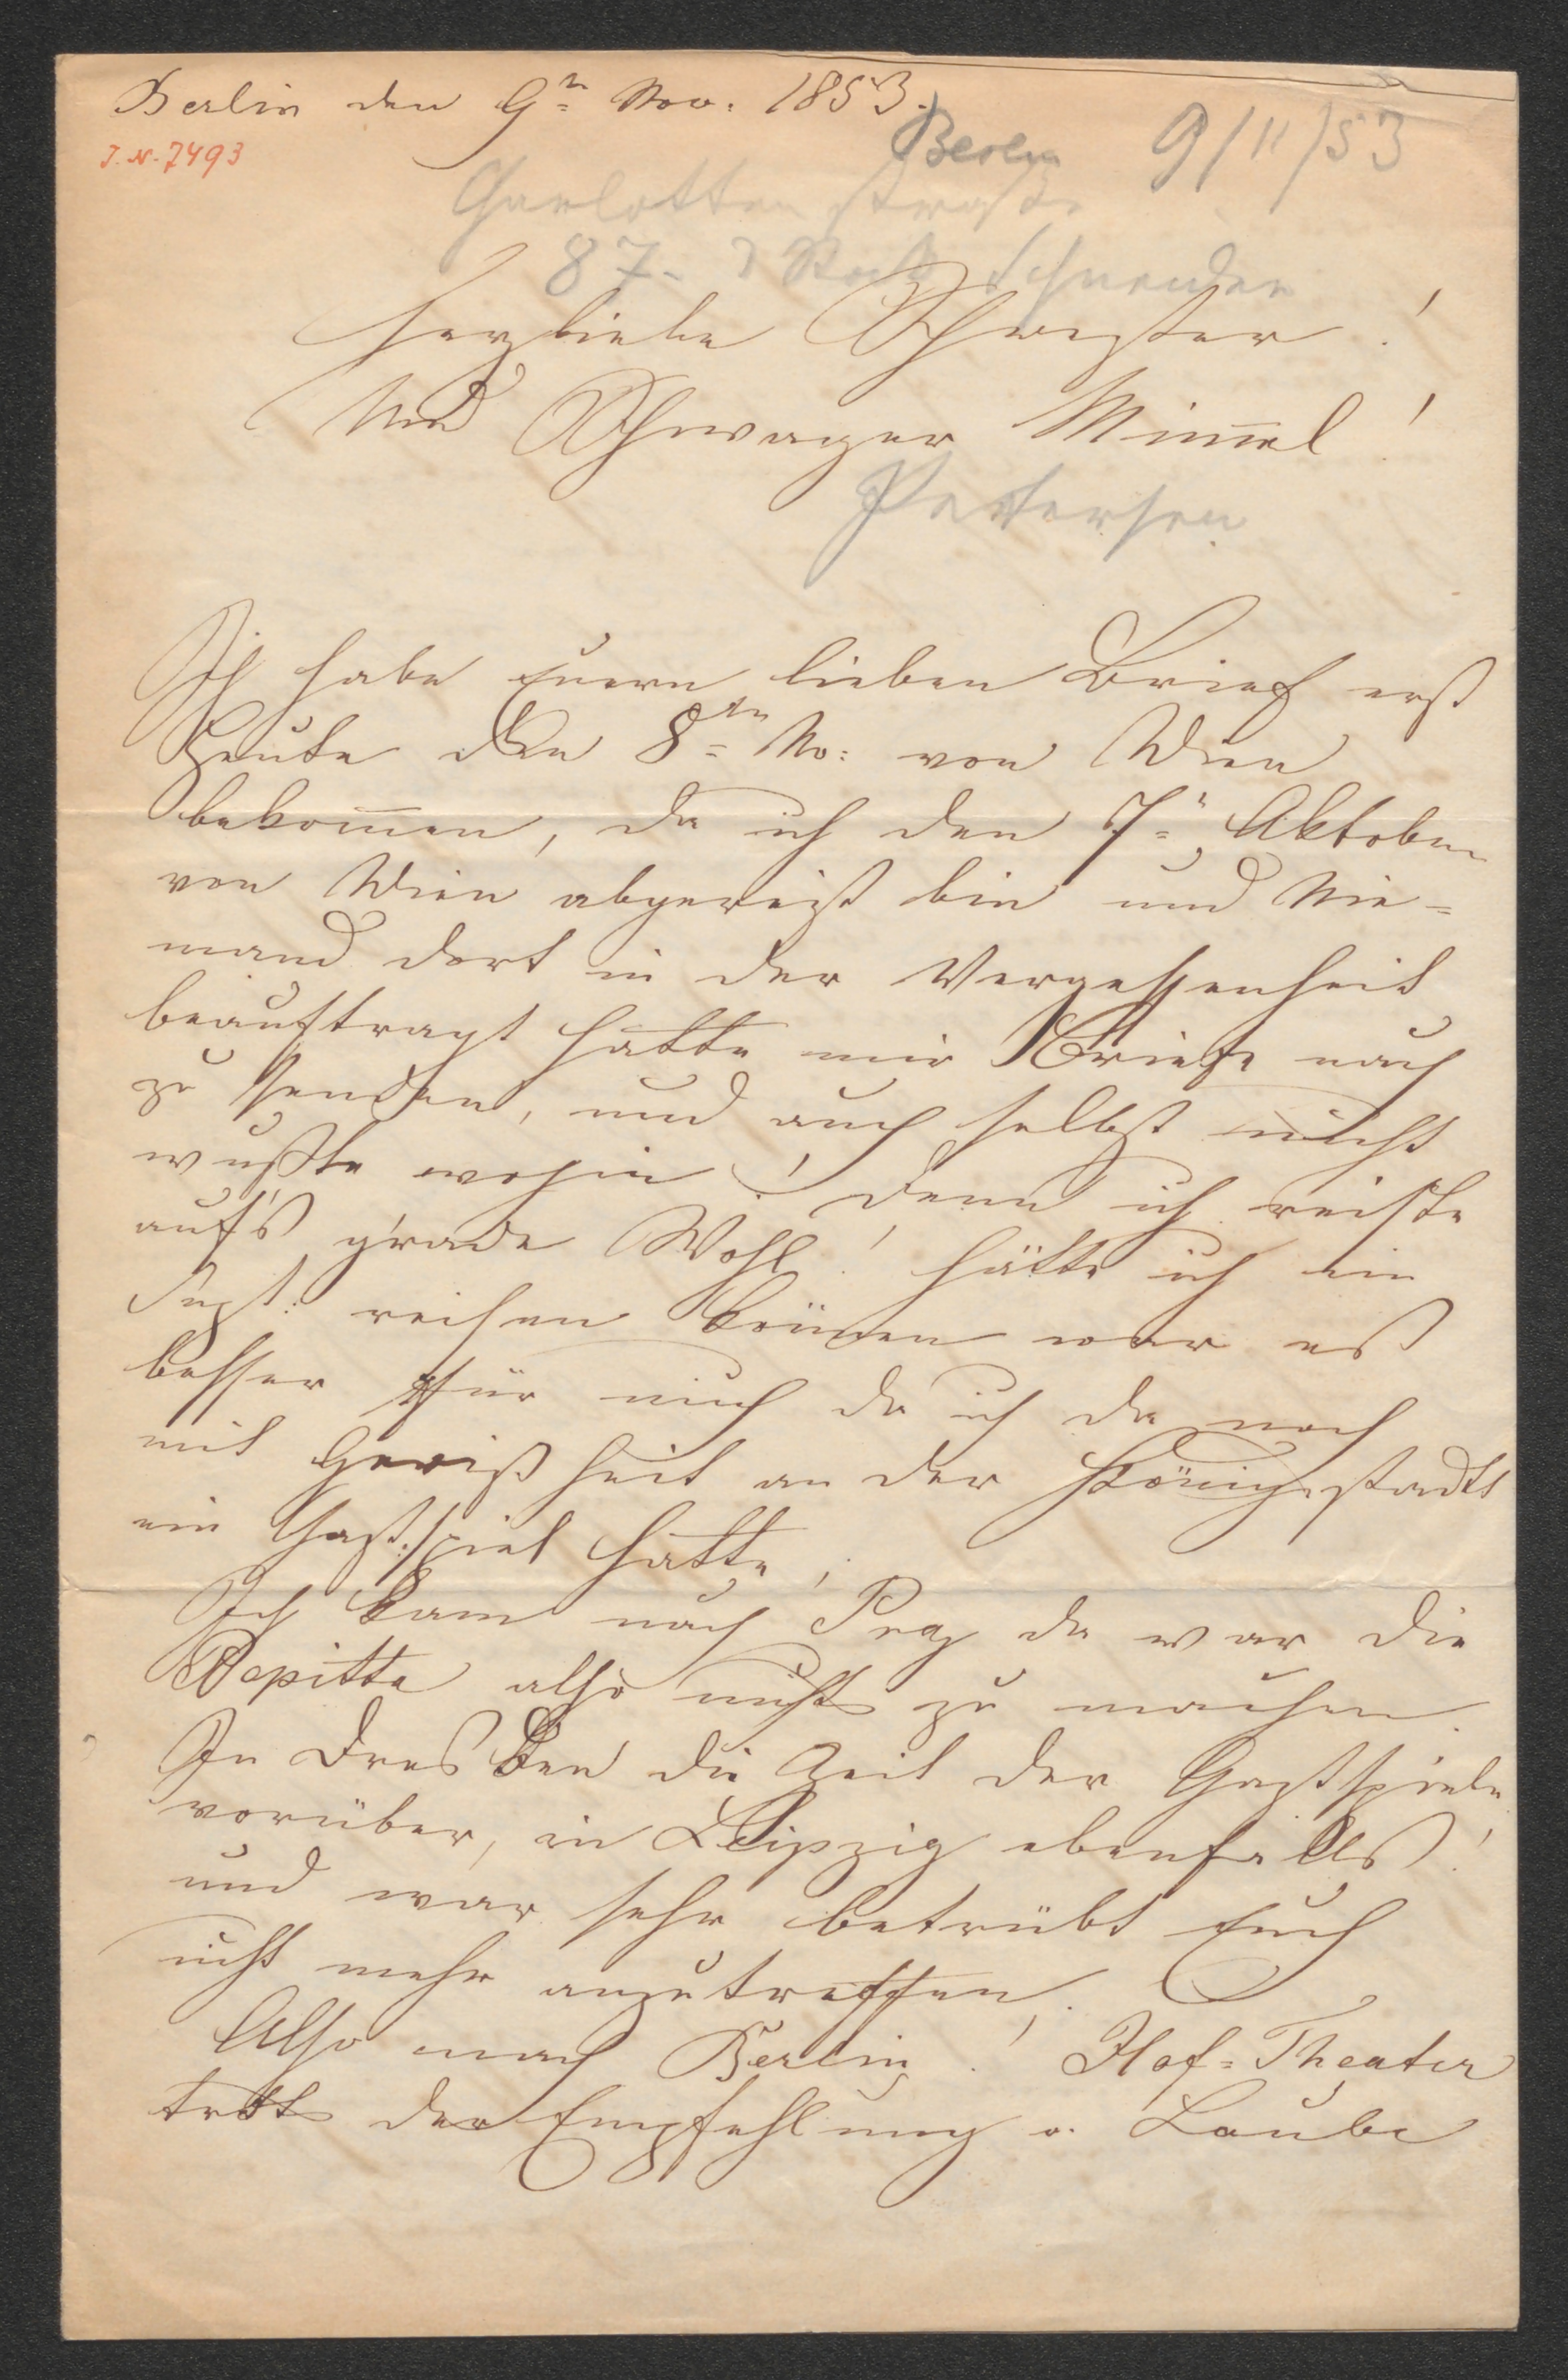 Berlin den 9n Nov. 1853.
Berlin 9/11/53
J. N. 7493
Charlotten straße
87. 3 Stock Schneider
Herzliebe Schwester!
Und Schwager Mim̅el!
Pettersen
Ich habe Euern lieben Brief erst
Heute den 8ten No: von Wien
bekom̅en, da ich den 7n Oktober
von Wien abgereist bin und Nie=
mand dort in der Vergessenheit
beauftragt hatte mir Briefe nach
zu senden, und auch selbst nicht
wußte wohin! denn ich reiste
auf's g'rade Wohl! hätte ich im
Sept: reisen kön̅en war es
besser für mich da ich da noch
mit Gewißheit an der Königsstadt
ein Gastspiel hatte,
Ich kam nach Prag da war die
Pepitta also nichts zu machen.
In Dresden die Zeit der Gastspiele
vorüber, in Leipzig ebenfalls!
und war sehr betrübt Euch
nicht mehr anzutreffen.
Also nach Berlin! Hof=Theater
trotz der Empfehlung v. Laube